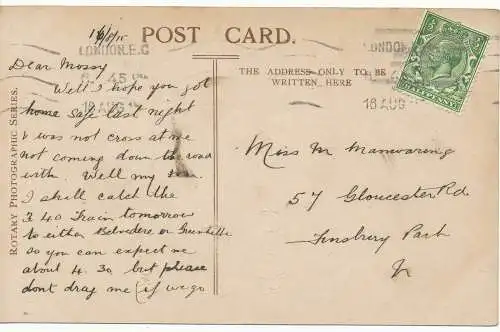 16/8/15
POST CARD.
LONDON.E.C
45
16 AUG 15
LONDON
16 AUG
HALFPENNY
ROTARY PHOTOGRAPHIC SERIES.
THE ADDRESS ONLY TO BE
WRITTEN HERE
Dear Mossy
Well I hope you got
home safe last night
& was not cross at me
not coming down the road
with. Well my
I shall catch the
3 40 Train tomorrow
to either Belvedere or
so you can expect me
about 4.30 but please
dont drag me (if we go
Miss M Manwaring
57 Gloucester Rd
Finsbury Park
N